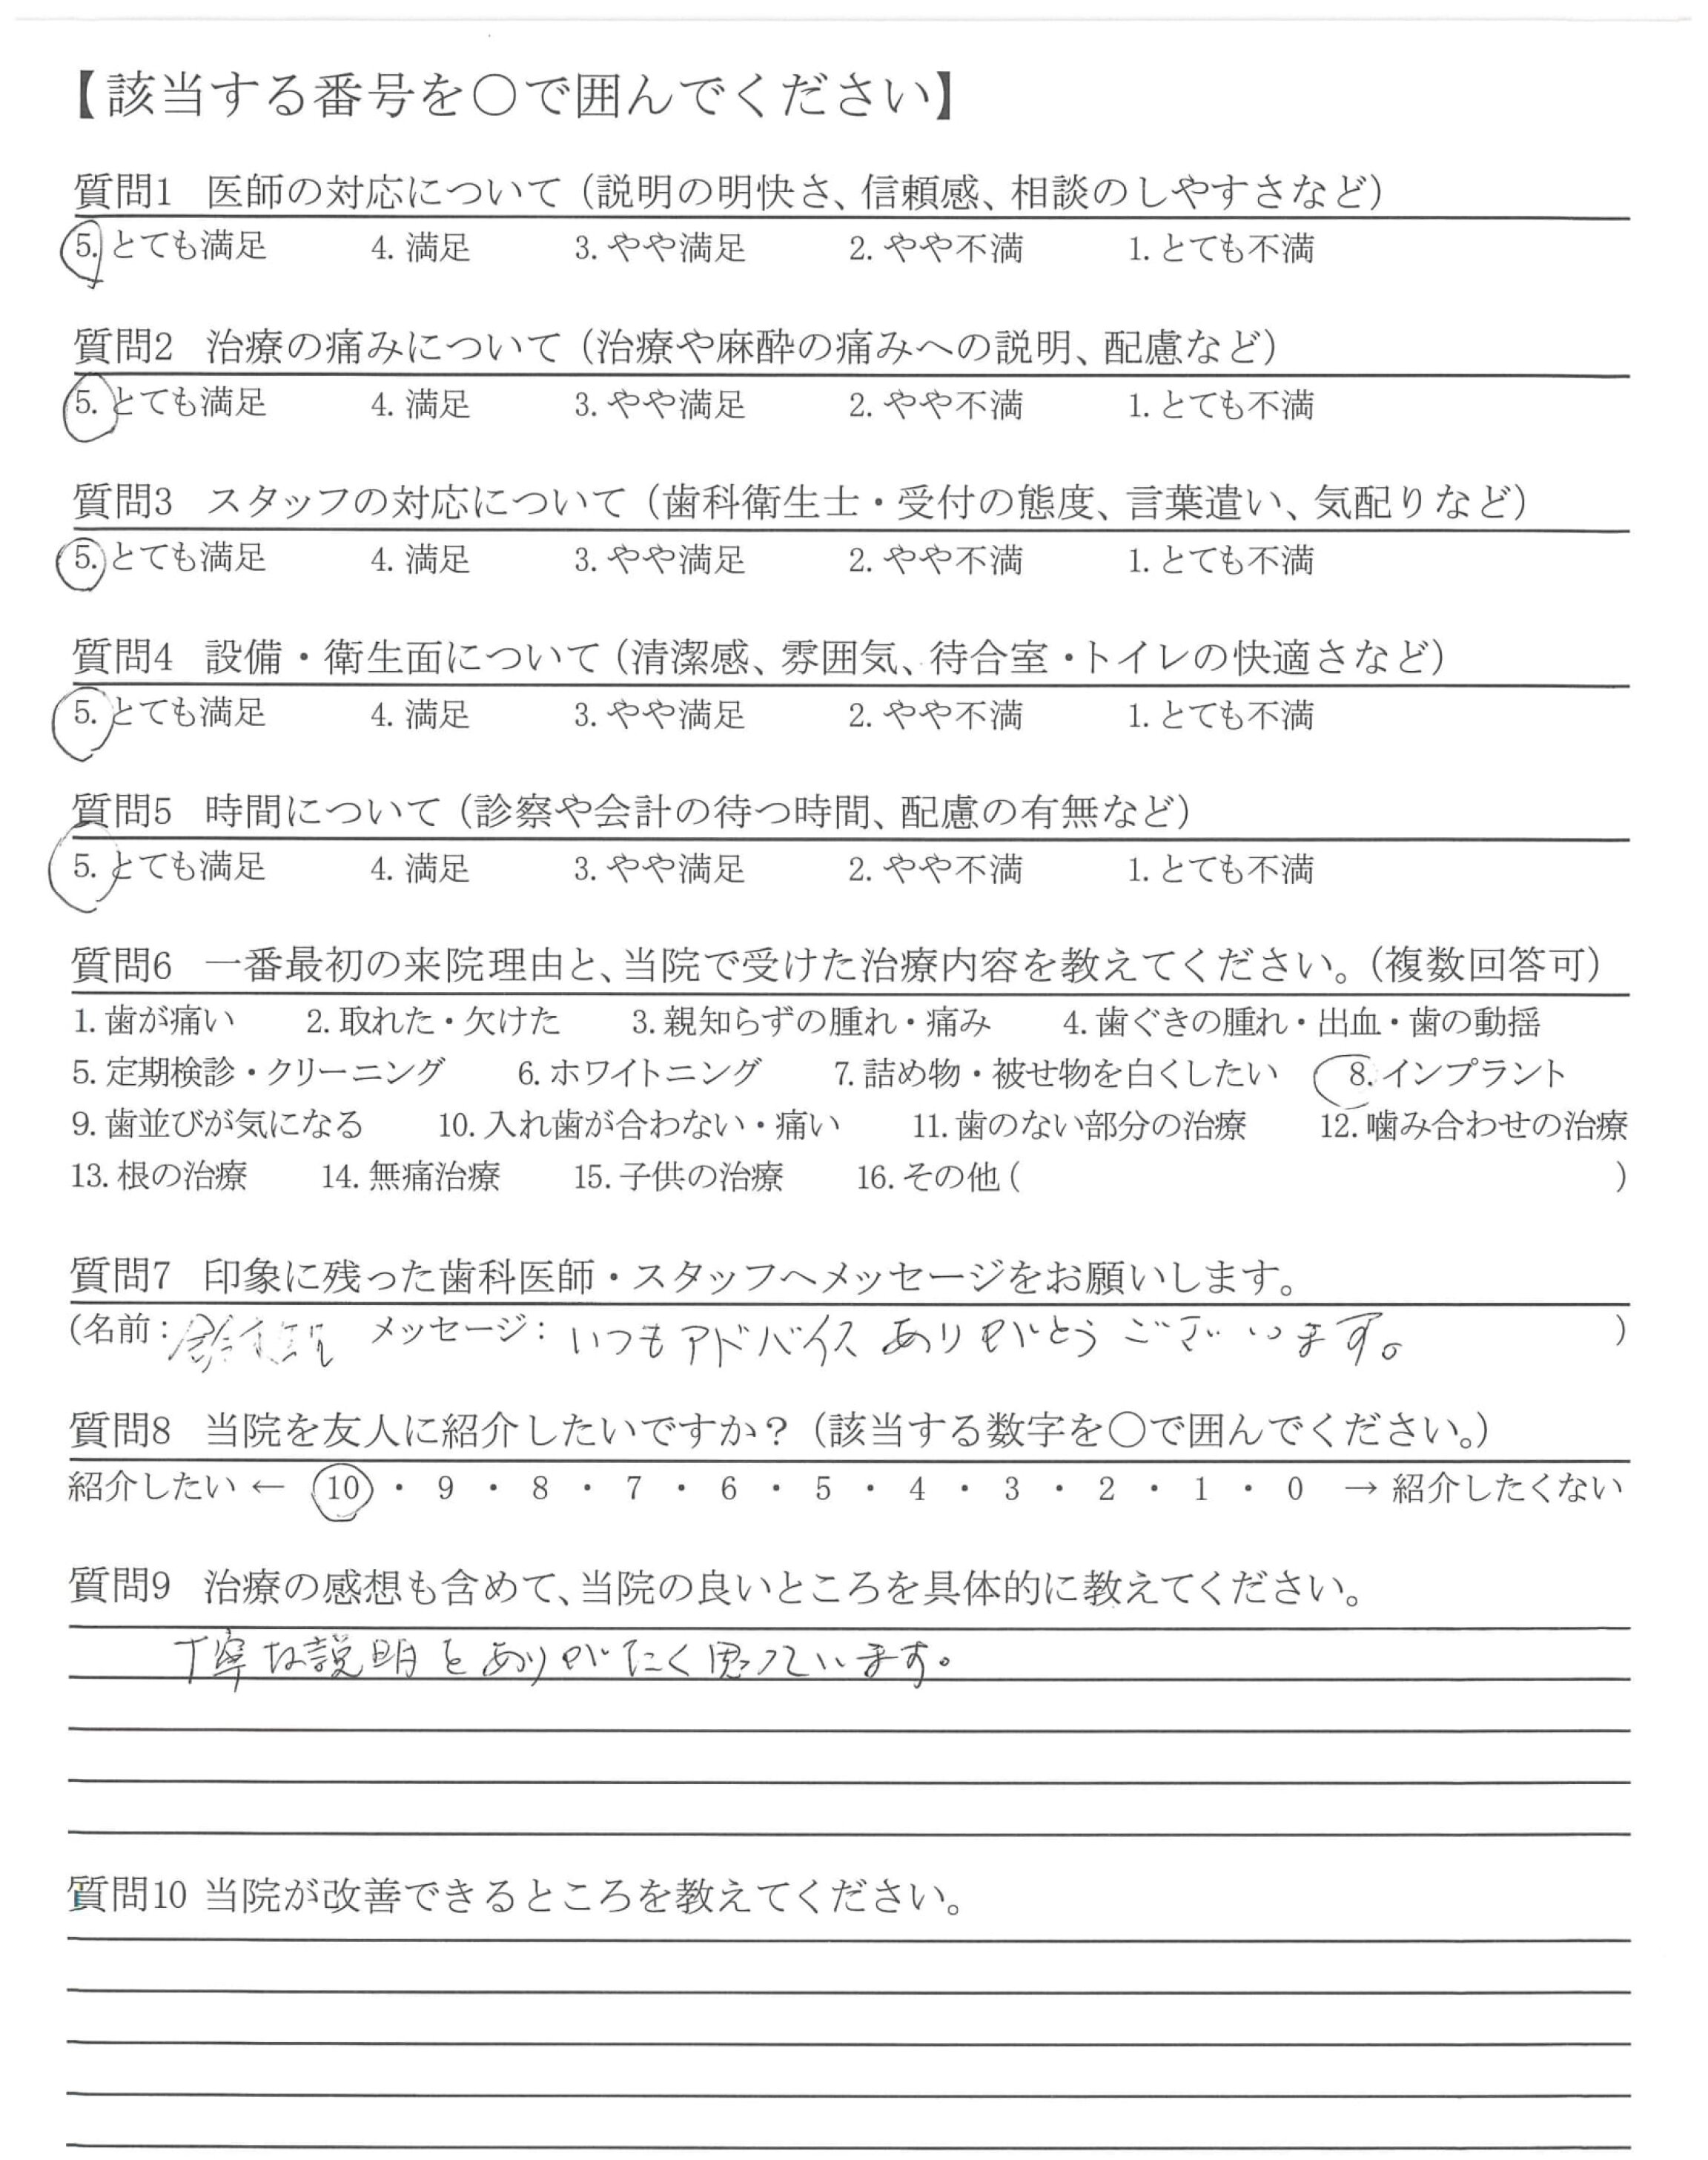 【該当する番号を○で囲んでください】
質問1 医師の対応について（説明の明快さ、信頼感、相談のしやすさなど）
5. とても満足 4. 満足 3. やや満足 2. やや不満 1. とても不満
質問2 治療の痛みについて（治療や麻酔の痛みへの説明、配慮など）
5. とても満足 4. 満足 3. やや満足 2. やや不満 1. とても不満
質問3 スタッフの対応について（歯科衛生士・受付の態度、言葉遣い、気配りなど）
5. とても満足 4. 満足 3. やや満足 2. やや不満 1. とても不満
質問4 設備・衛生面について（清潔感、雰囲気、待合室・トイレの快適さなど）
5. とても満足 4. 満足 3. やや満足 2. やや不満 1. とても不満
質問5 時間について（診察や会計の待つ時間、配慮の有無など）
5. とても満足 4. 満足 3. やや満足 2. やや不満 1. とても不満
質問6 一番最初の来院理由と、当院で受けた治療内容を教えてください。（複数回答可）
1. 歯が痛い 2. 取れた・欠けた 3. 親知らずの腫れ・痛み 4. 歯ぐきの腫れ・出血・歯の動揺
5. 定期検診・クリーニング 6. ホワイトニング 7. 詰め物・被せ物を白くしたい 8. インプラント
9. 歯並びが気になる 10. 入れ歯が合わない・痛い 11. 歯のない部分の治療 12. 噛み合わせの治療
13. 根の治療 14. 無痛治療 15. 子供の治療 16. その他（ ）
質問7 印象に残った歯科医師・スタッフへメッセージをお願いします。
（名前： メッセージ：いつもアドバイスありがとうございます。 ）
質問8 当院を友人に紹介したいですか？（該当する数字を○で囲んでください。）
紹介したい ← 10 ・ 9 ・ 8 ・ 7 ・ 6 ・ 5 ・ 4 ・ 3 ・ 2 ・ 1 ・ 0 → 紹介したくない
質問9 治療の感想も含めて、当院の良いところを具体的に教えてください。
丁寧な説明をありがたく思っています。
質問10 当院が改善できるところを教えてください。